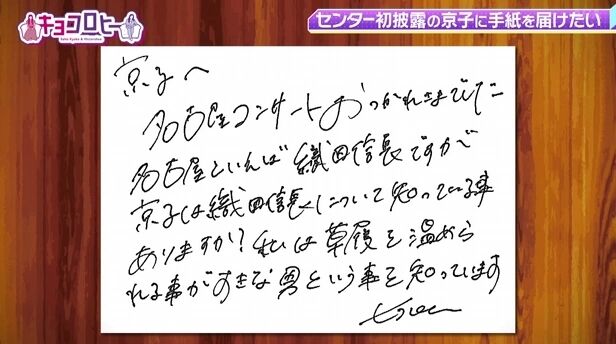 キョコロヒー
センター初披露の京子に手紙を届けたい
京子へ
名古屋コンサートおつかれさまでした
名古屋といえば織田信長ですが
京子は織田信長について知っている事
ありますか?私は草履を温めら
れる事がすきな男という事を知っています